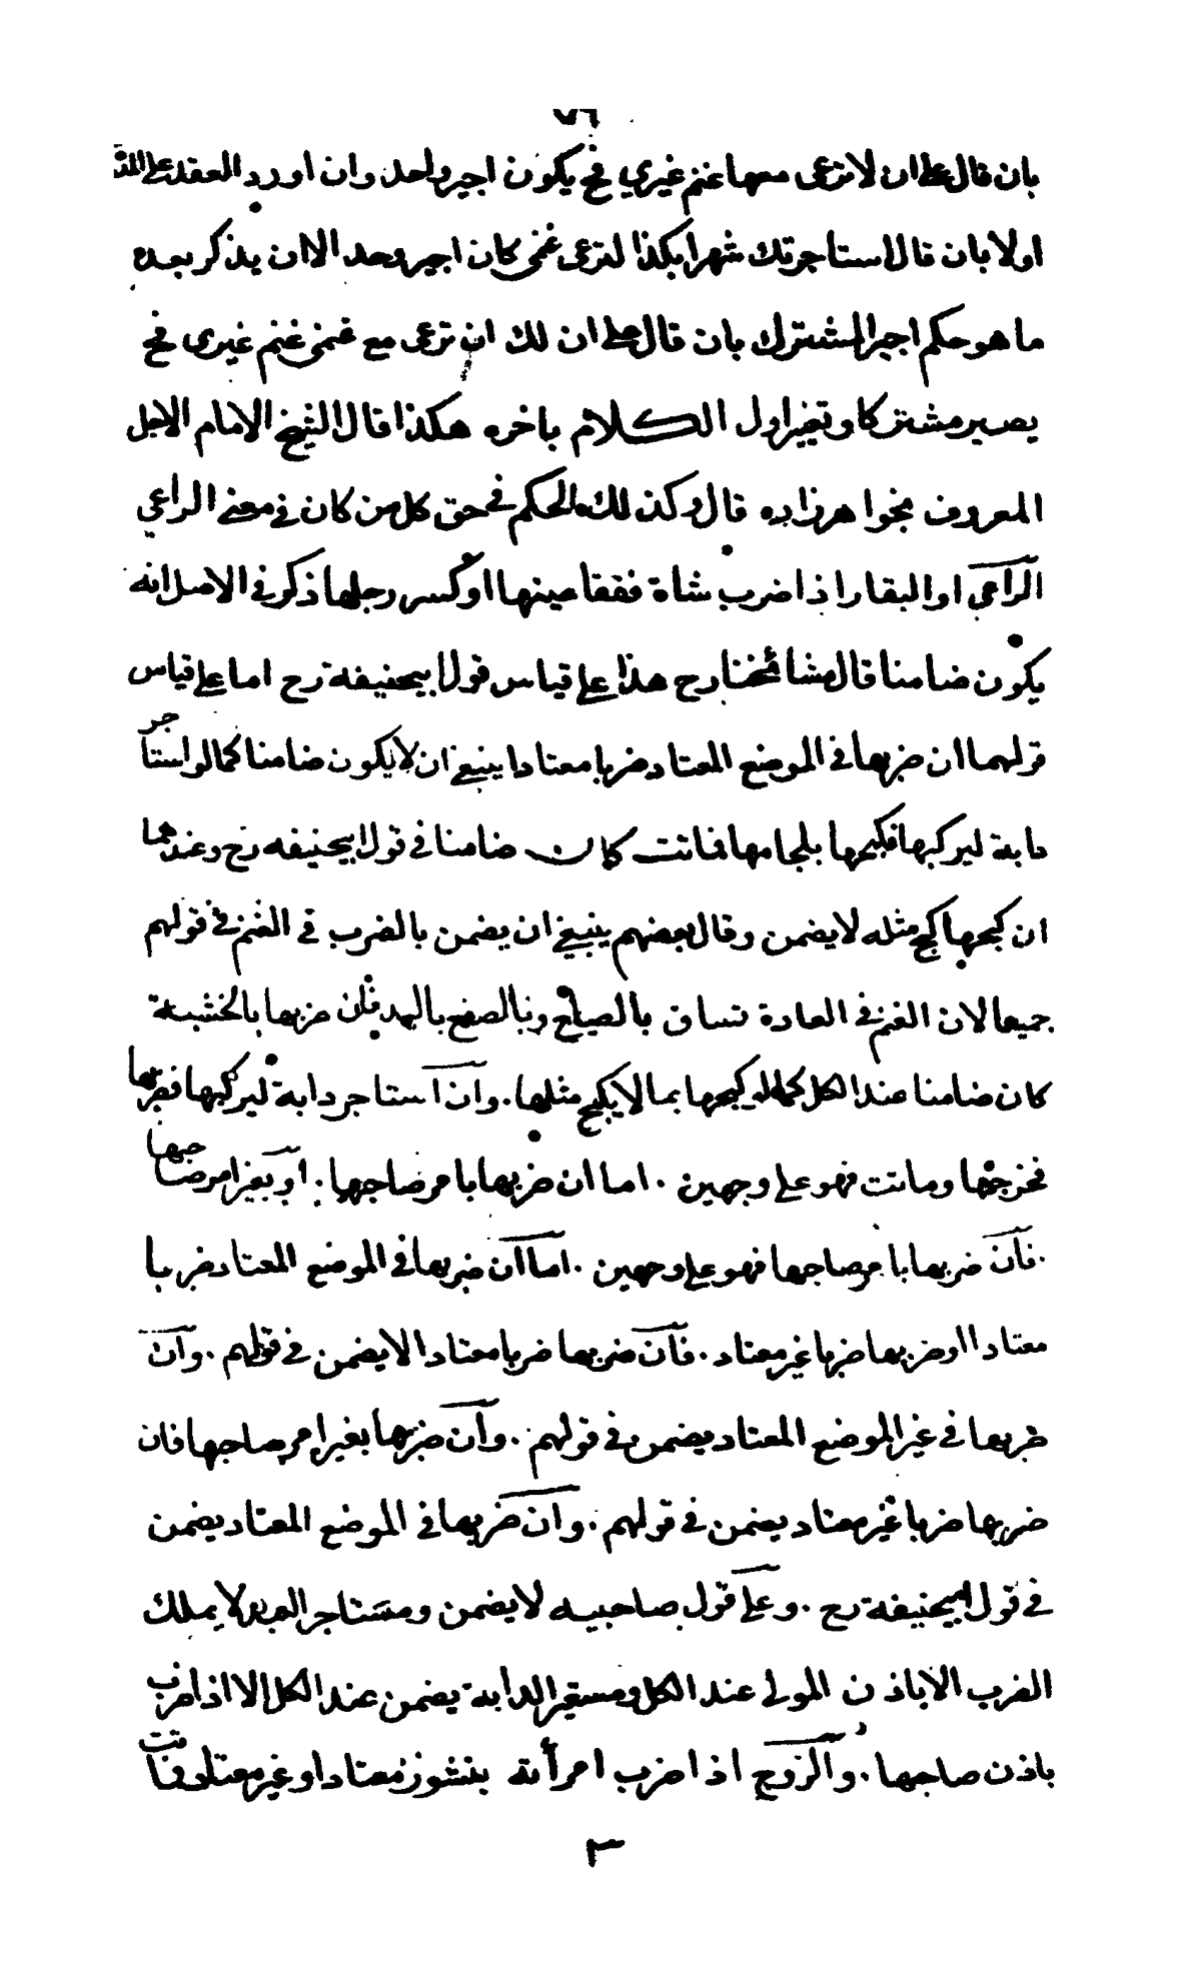 ٧٦
بان قال على ان لا ترعى معها غنم غيري فح يكون اجير واحد وان اورد العقد على المدة
اولا بان قال استاجرتك شهرا بكذا لترعى غنمى كان اجير وحد الا ان يذكر بعده
ما هو حكم اجير المشترك بان قال على ان لك ان ترعى مع غنمى غنم غيرى فح
يصير مشتركا وتغير اول الكلام باخره هكذا قال الشيخ الامام الاجل
المعروف بخواهرزاده قال وكذلك الحكم في حق كل من كان في معنى الراعي
الراعى او البقار اذا ضرب شاة ففقا عينها او كسر رجلها ذكر في الاصل انه
يكون ضامنا قال مشائخنا رح هذا على قياس قول ابيحنيفة رح اما على قياس
قولهما ان ضربها في الموضع المعتاد ضربا معتادا ينبغي ان لا يكون ضامنا كما لو استاجر
دابة ليركبها فكبحها بلجامها فماتت كان ضامنا في قول ابيحنيفه رح وعندهما
ان كبحها كبح مثله لا يضمن وقال بعضهم ينبغي ان يضمن بالضرب في الغنم في قولهم
جميعا لان الغنم في العادة تساق بالصياح وبالصفع باليد فان ضربها بالخشبة
كان ضامنا عند الكل كما لو كبحها بما لا يكبح مثلها . وان استاجر دابة ليركبها فضربها
فخرجها وماتت فهو على وجهين . اما ان ضربها بامر صاحبها . او بغير امر صاحبها
. فان ضربها بامر صاحبها فهو على وجهين . اما ان ضربها في الموضع المعتاد ضربا
معتادا او ضربها ضربا غير معتاد . فان ضربها ضربا معتادا لا يضمن في قولهم . وان
ضربها في غير الموضع المعتاد يضمن في قولهم . وان ضربها بغير امر صاحبها فان
ضربها ضربا غير معتاد يضمن في قولهم . وان ضربها في الموضع المعتاد يضمن
في قول ابيحنيفة رح . وعلى قول صاحبيه لا يضمن ومستاجر العبد لا يملك
الضرب الا باذن المولى عند الكل ومستعير الدابة يضمن عند الكل الا اذا ضرب
باذن صاحبها . والزوج اذا ضرب امرأته بنشوز معتادا وغير معتاد فماتت
٣